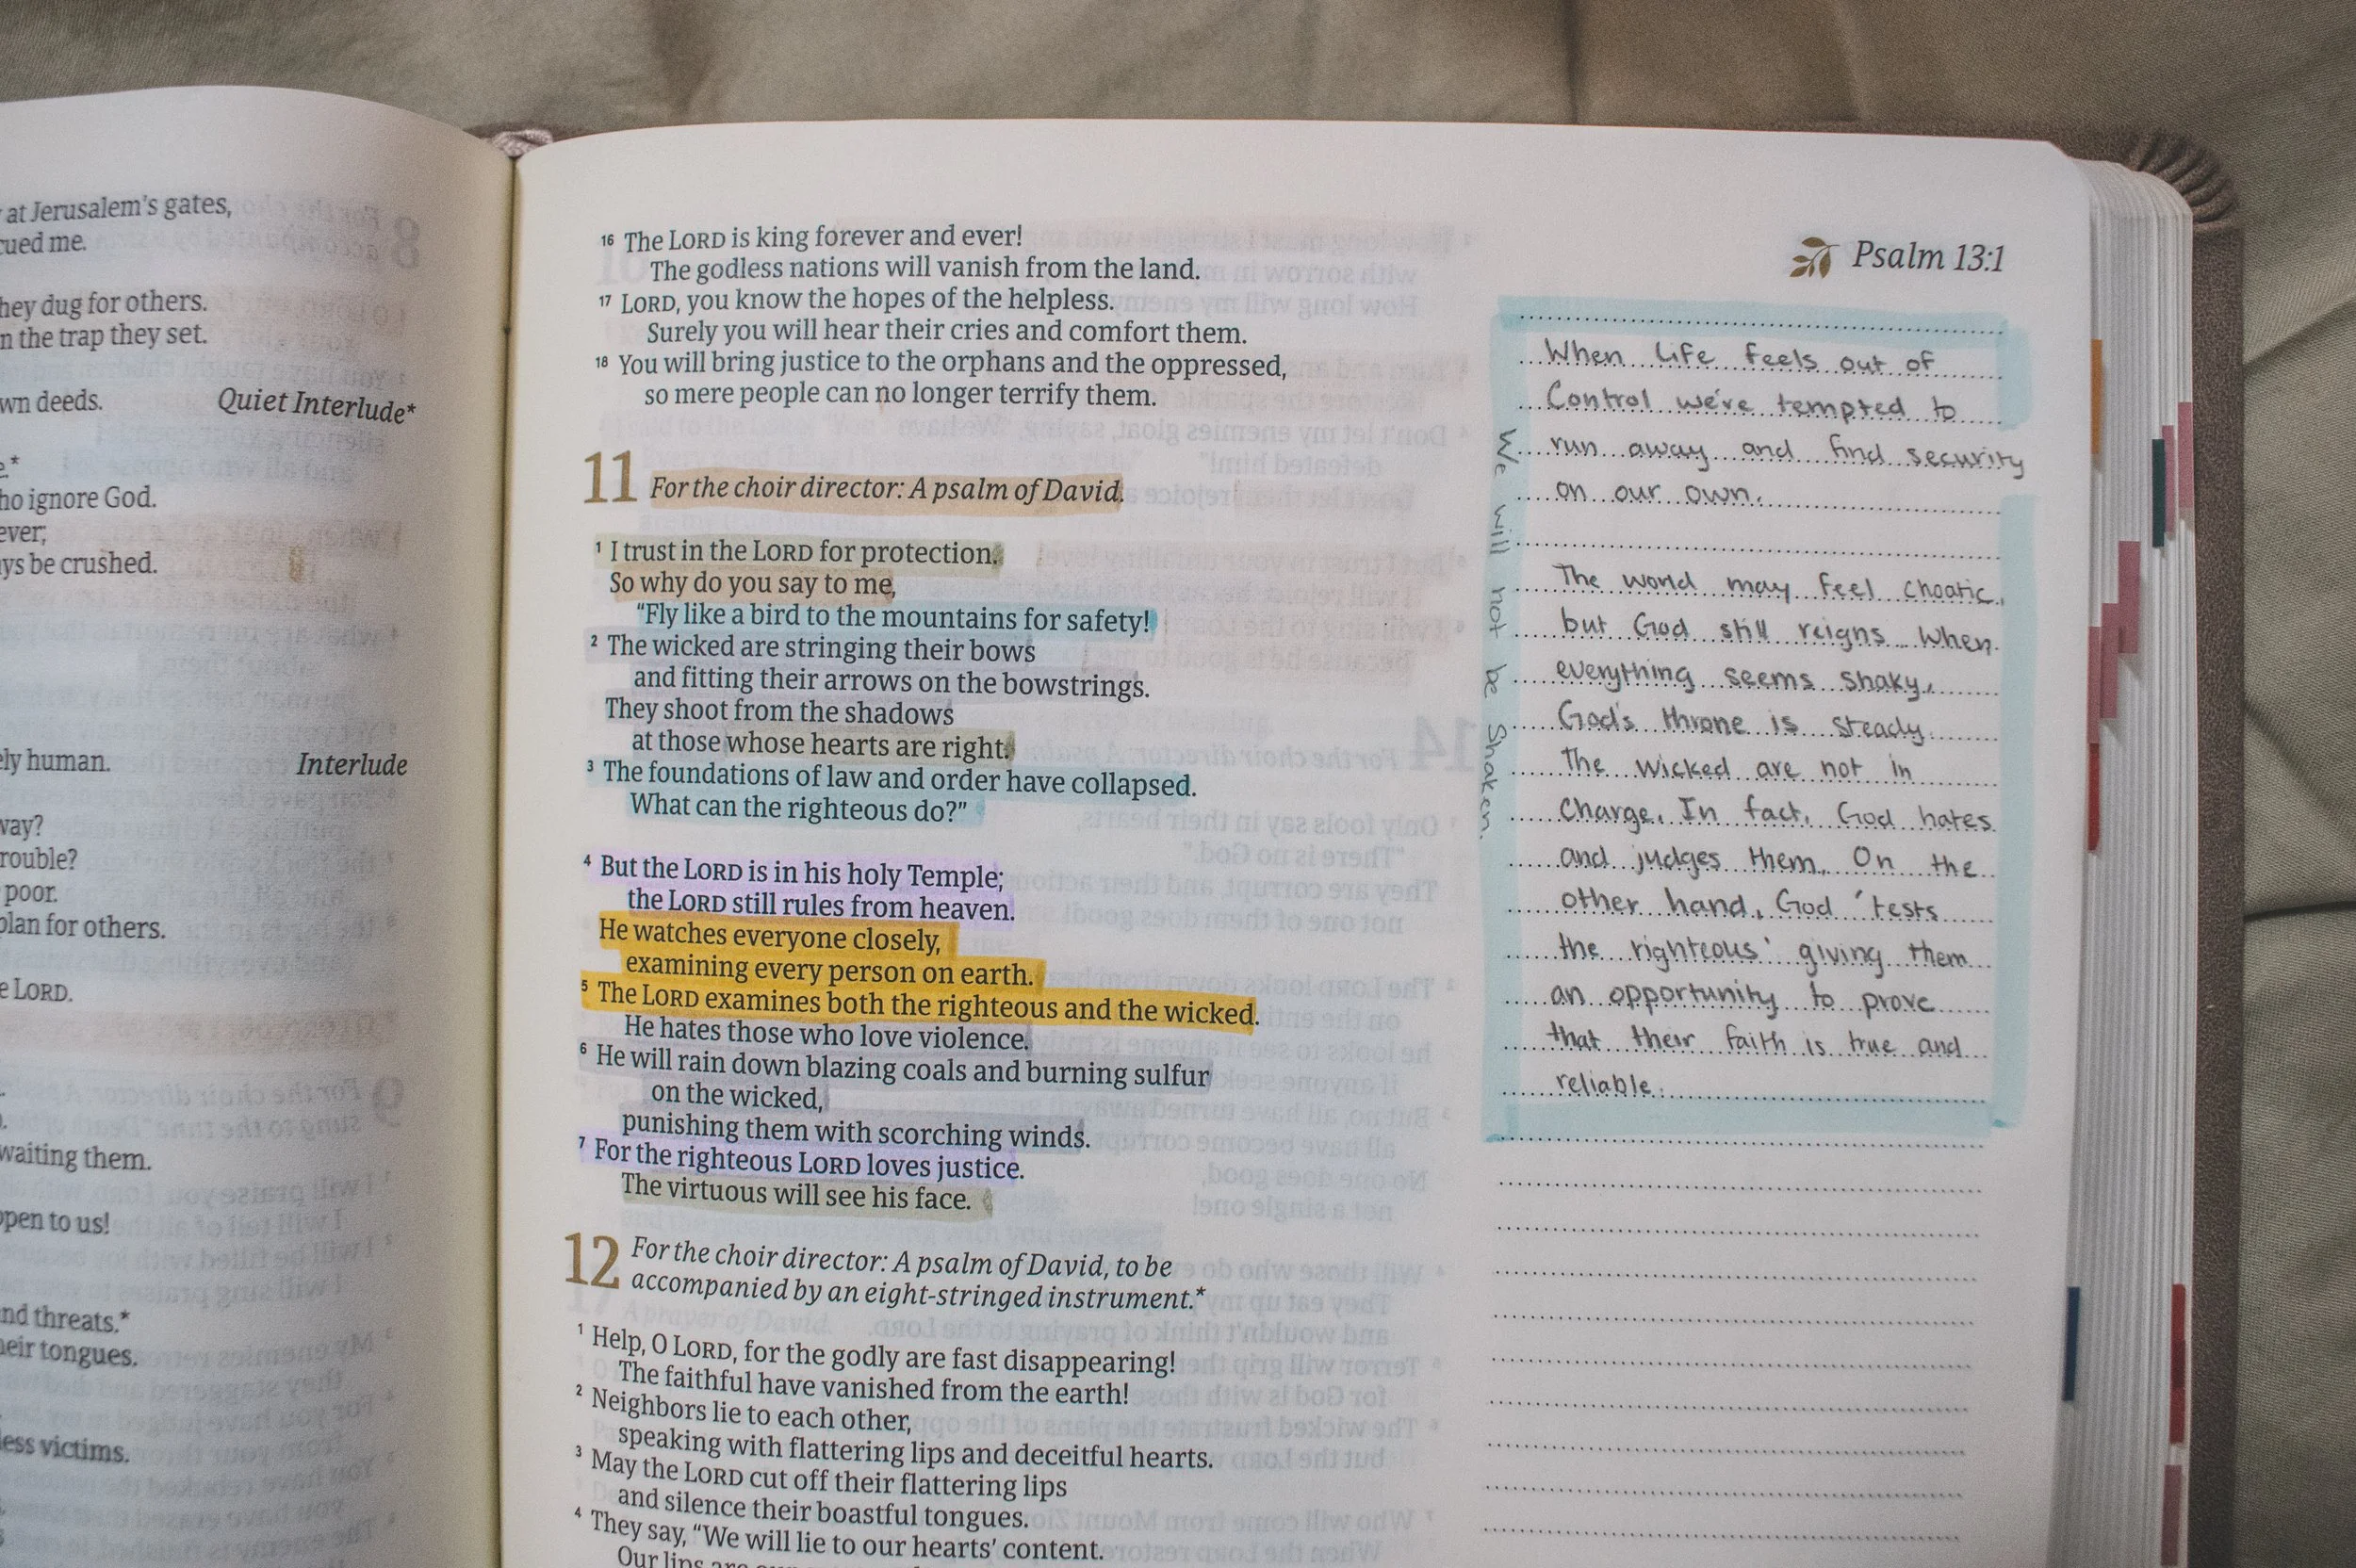 at Jerusalem's gates,
me.
hey dug for others.
the trap they set.
deeds. Quiet Interlude*
ho ignore God.
ever;
be crushed.
human. Interlude
poor.
plan for others.
LORD.
waiting them.
open to us!
threats.*
their tongues.
victims.
16 The LORD is king forever and ever!
The godless nations will vanish from the land.
17 LORD, you know the hopes of the helpless.
Surely you will hear their cries and comfort them.
18 You will bring justice to the orphans and the oppressed,
so mere people can no longer terrify them.
11 For the choir director: A psalm of David.
1 I trust in the LORD for protection.
So why do you say to me,
“Fly like a bird to the mountains for safety!
2 The wicked are stringing their bows
and fitting their arrows on the bowstrings.
They shoot from the shadows
at those whose hearts are right.
3 The foundations of law and order have collapsed.
What can the righteous do?”
4 But the LORD is in his holy Temple;
the LORD still rules from heaven.
He watches everyone closely,
examining every person on earth.
5 The LORD examines both the righteous and the wicked.
He hates those who love violence.
6 He will rain down blazing coals and burning sulfur
on the wicked,
punishing them with scorching winds.
7 For the righteous LORD loves justice.
The virtuous will see his face.
12 For the choir director: A psalm of David, to be
accompanied by an eight-stringed instrument.*
1 Help, O LORD, for the godly are fast disappearing!
The faithful have vanished from the earth!
2 Neighbors lie to each other,
speaking with flattering lips and deceitful hearts.
3 May the LORD cut off their flattering lips
and silence their boastful tongues.
4 They say, “We will lie to our hearts’ content.
Our lips are
Psalm 13:1
When life feels out of
Control we're tempted to
run away and find security
on our own.
The world may feel choatic,
but God still reigns. When
everything seems shaky,
God's throne is steady.
The wicked are not in
charge. In fact, God hates
and judges them. On the
other hand, God 'tests
the righteous' giving them
an opportunity to prove
that their faith is true and
reliable.
We will not be Shaken.